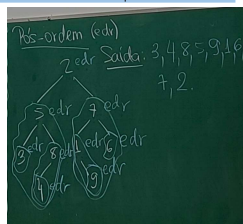 Pós-ordem (edr)
2 edr Saída: 3,4,8,5,9,1,6
7,2.
5 edr 7 edr
3 edr 8 edr 1 edr 6 edr
4 edr 9 edr